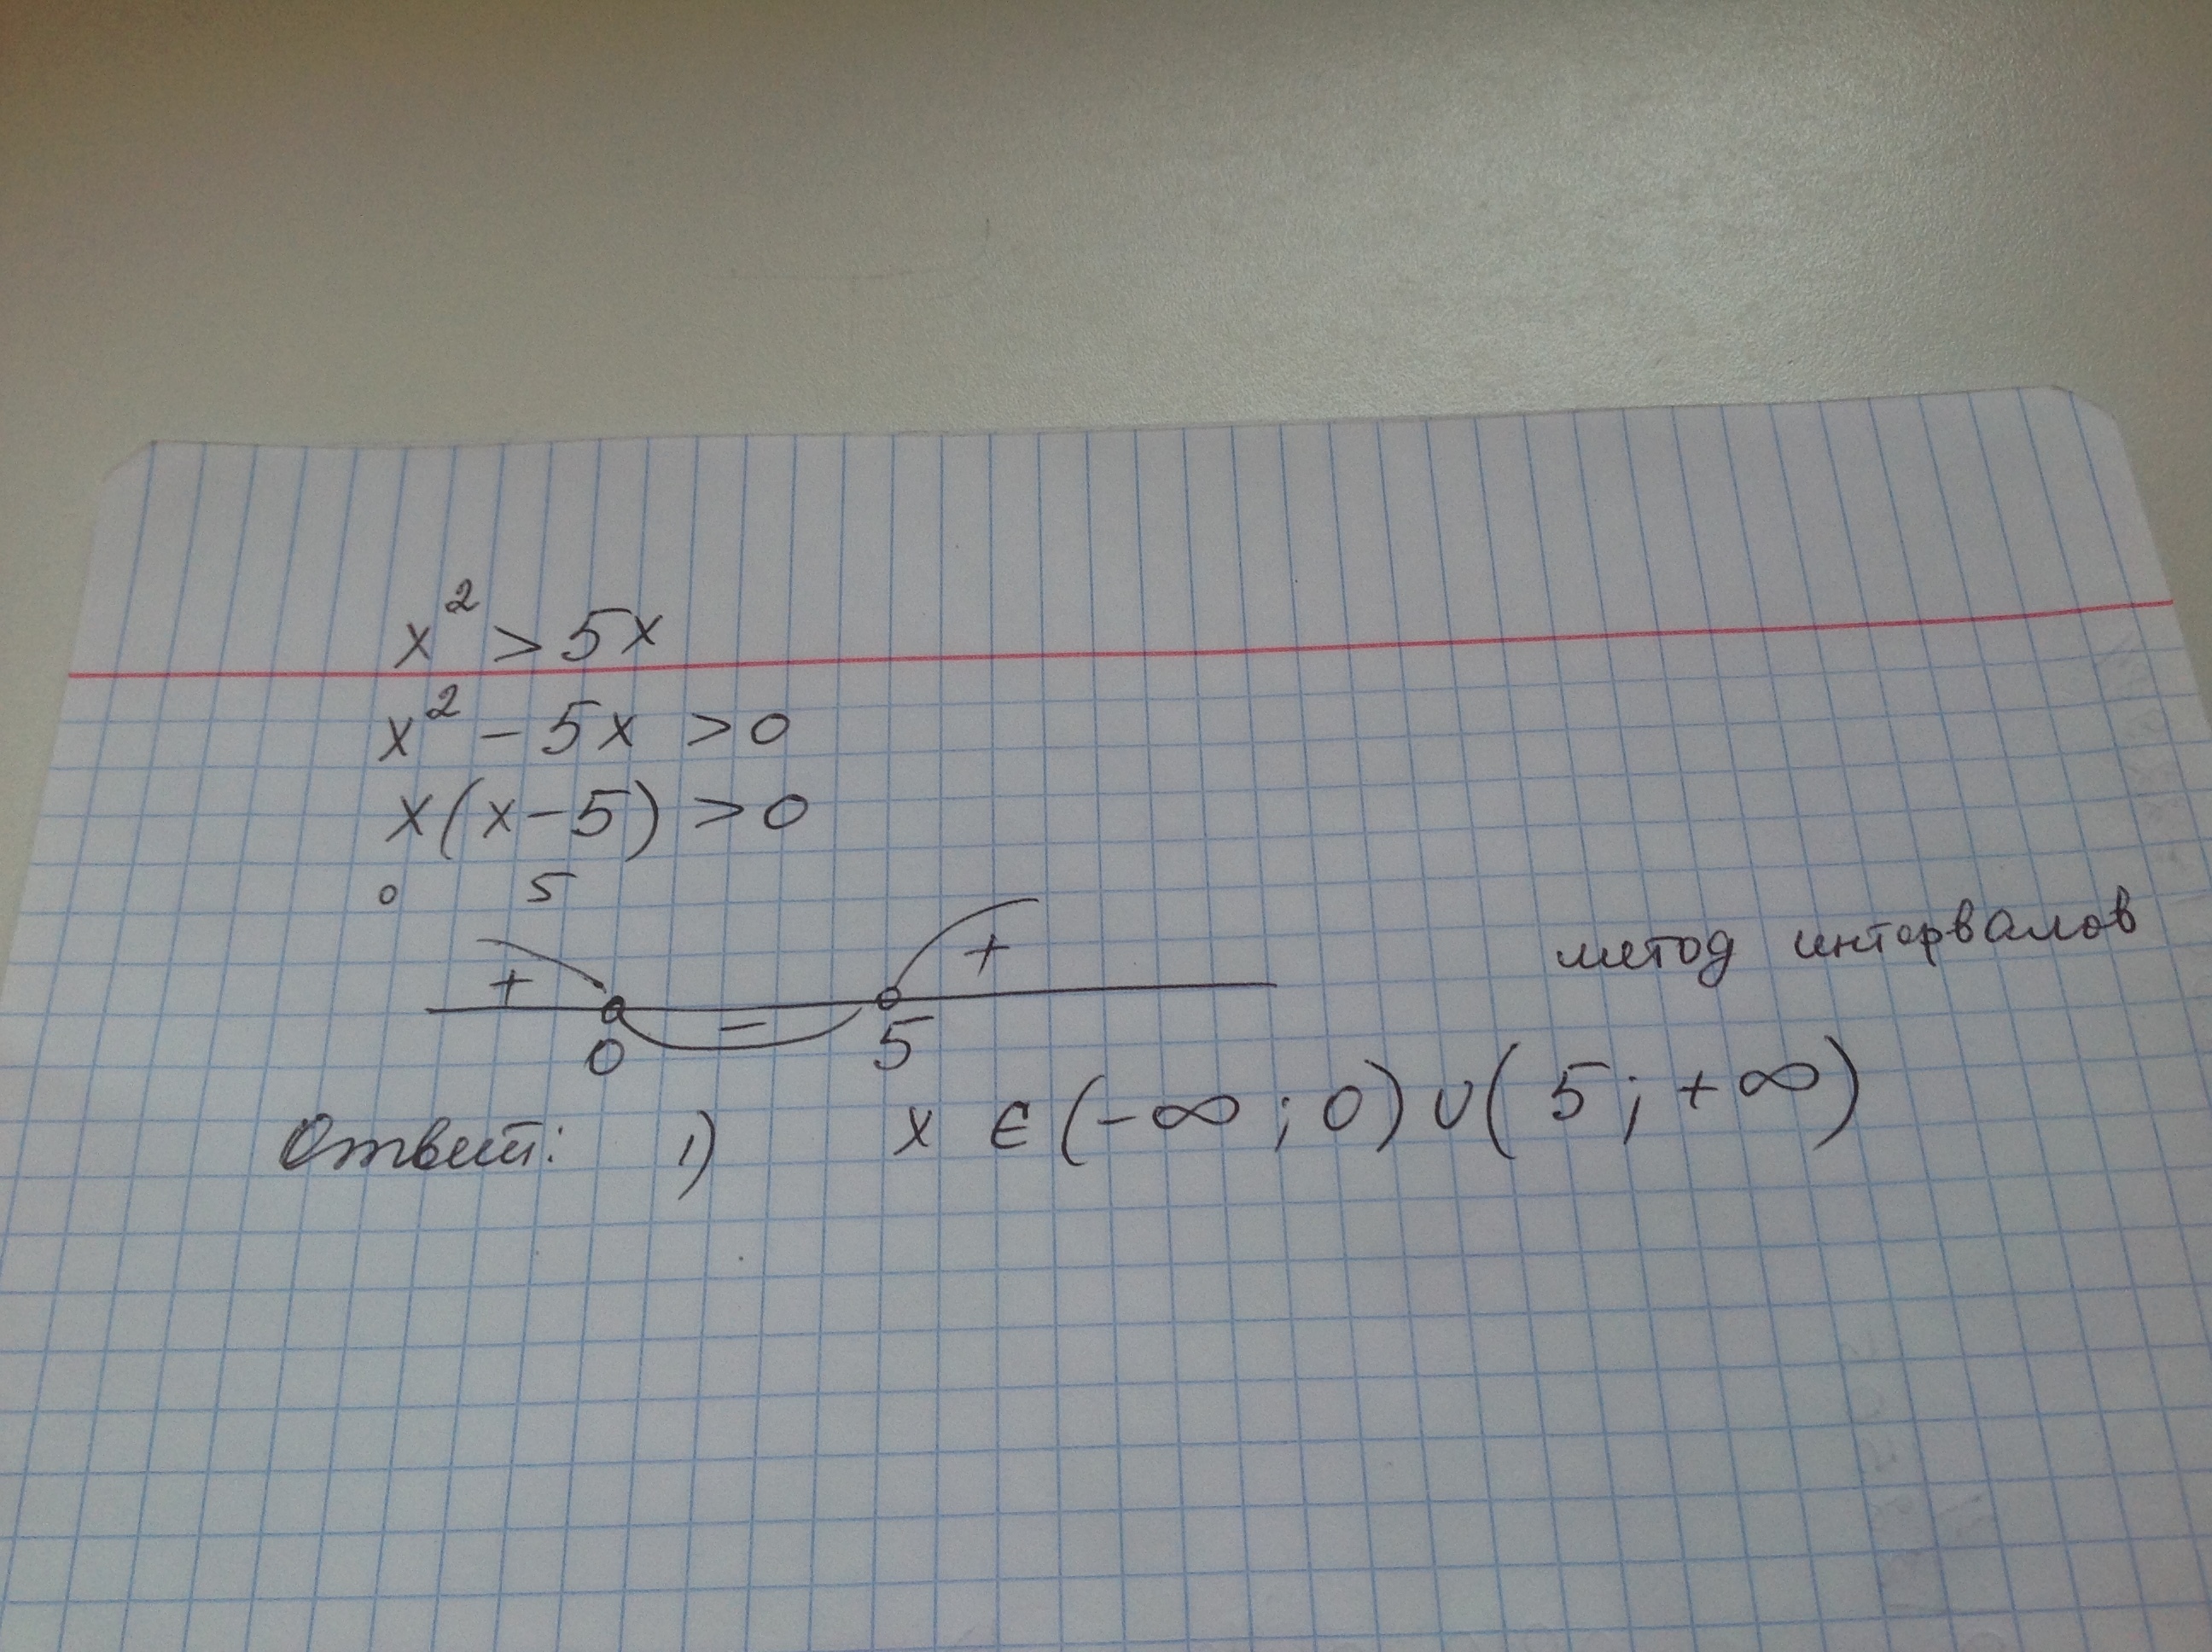 x² > 5x
x² - 5x > 0
x(x-5) > 0
0 5
+ - +
0 5
метод интервалов
Ответ: 1) x ∈ (-∞; 0) ∪ (5; +∞)